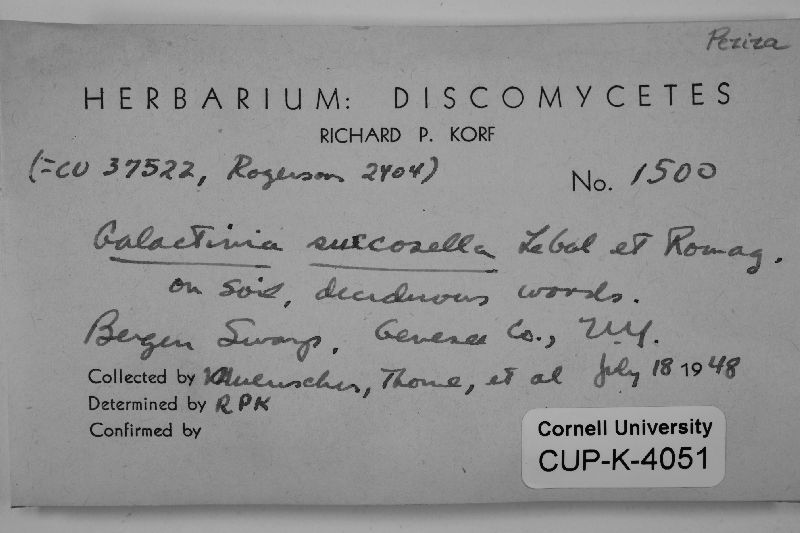 Peziza
HERBARIUM: DISCOMYCETES
RICHARD P. KORF
(=CU 37522, Rogerson 2404)
No. 1500
Galactinia succosella Le Gal et Romag.
on soil, deciduous woods.
Bergen Swamp, Genesee Co., N.Y.
Collected by Muenscher, Thorne, et al July 18 1948
Determined by RPK
Confirmed by
Cornell University
CUP-K-4051